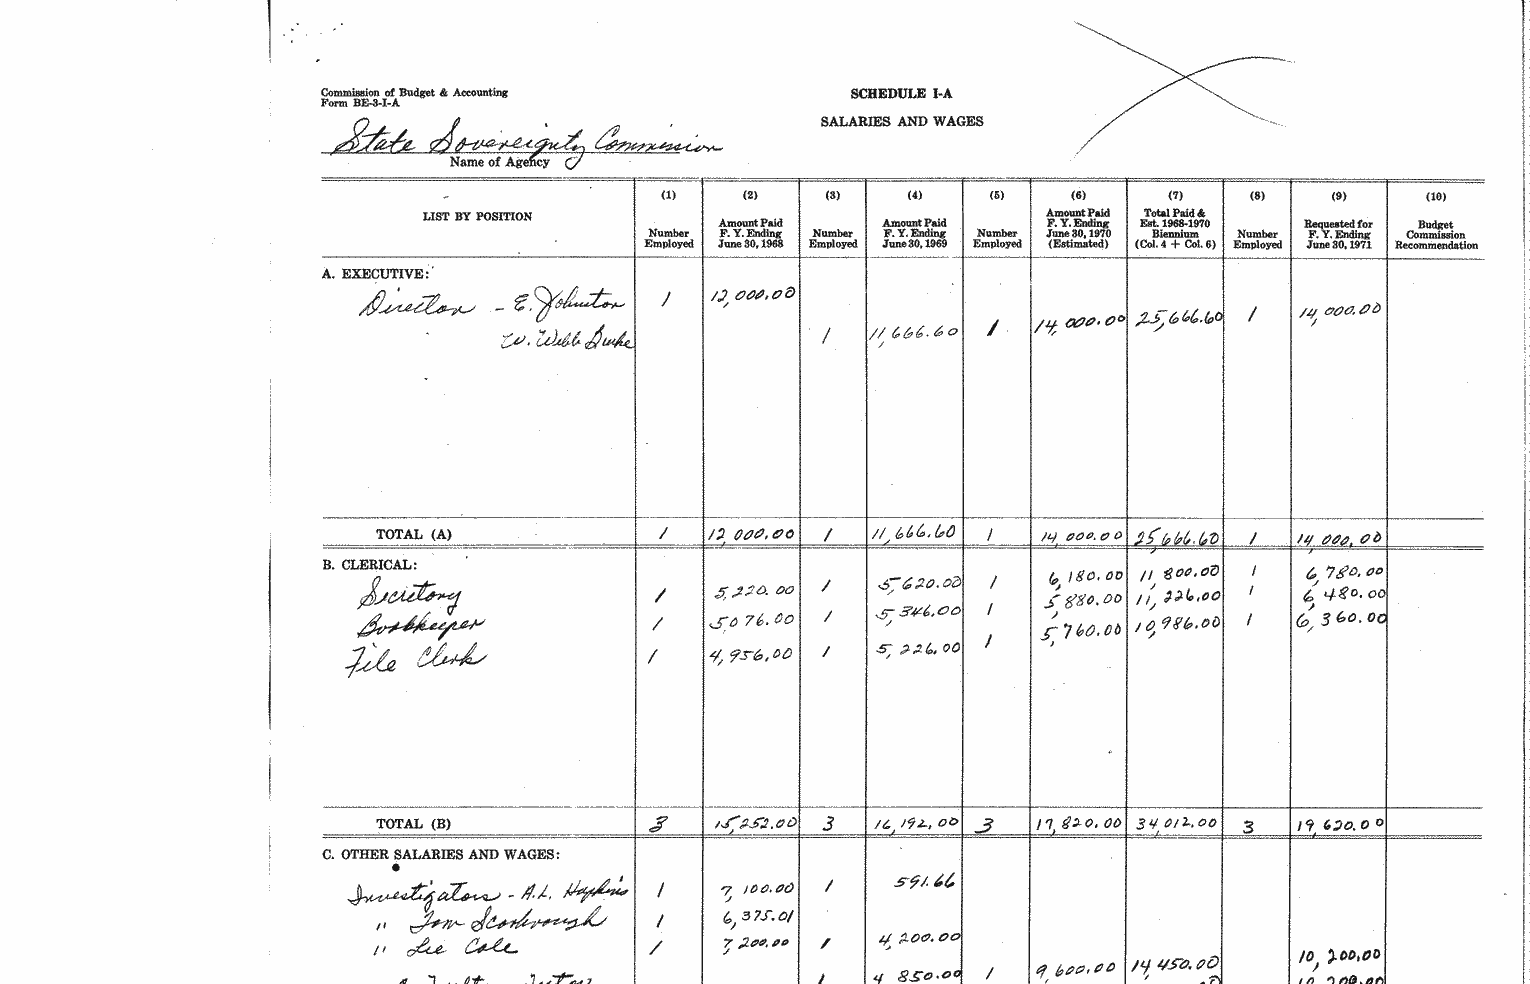 Commission of Budget & Accounting
Form BE-3-I-A
SCHEDULE I-A
SALARIES AND WAGES
State Sovereignty Commission
Name of Agency
LIST BY POSITION
(1) Number Employed
(2) Amount Paid F. Y. Ending June 30, 1968
(3) Number Employed
(4) Amount Paid F. Y. Ending June 30, 1969
(5) Number Employed
(6) Amount Paid F. Y. Ending June 30, 1970 (Estimated)
(7) Total Paid & Est. 1968-1970 Biennium (Col. 4 + Col. 6)
(8) Number Employed
(9) Requested for F. Y. Ending June 30, 1971
(10) Budget Commission Recommendation
A. EXECUTIVE:
Director - E. Johnston 1 12,000.00
W. Webb Burke 1 11,666.60 1 14,000.00 25,666.60 1 14,000.00
TOTAL (A) 1 12,000.00 1 11,666.60 1 14,000.00 25,666.60 1 14,000.00
B. CLERICAL:
Secretary 1 5,220.00 1 5,620.00 1 6,180.00 11,800.00 1 6,780.00
Bookkeeper 1 5,076.00 1 5,346.00 1 5,880.00 11,226.00 1 6,480.00
File Clerk 1 4,956.00 1 5,226.00 1 5,760.00 10,986.00 1 6,360.00
TOTAL (B) 3 15,252.00 3 16,192.00 3 17,820.00 34,012.00 3 19,620.00
C. OTHER SALARIES AND WAGES:
Investigators - A.L. Hopkins 1 7,100.00 1 591.66
" Tom Scarbrough 1 6,375.01
" Lee Cole 1 7,200.00 1 4,200.00
1 4,850.00 1 9,600.00 14,450.00 10,200.00